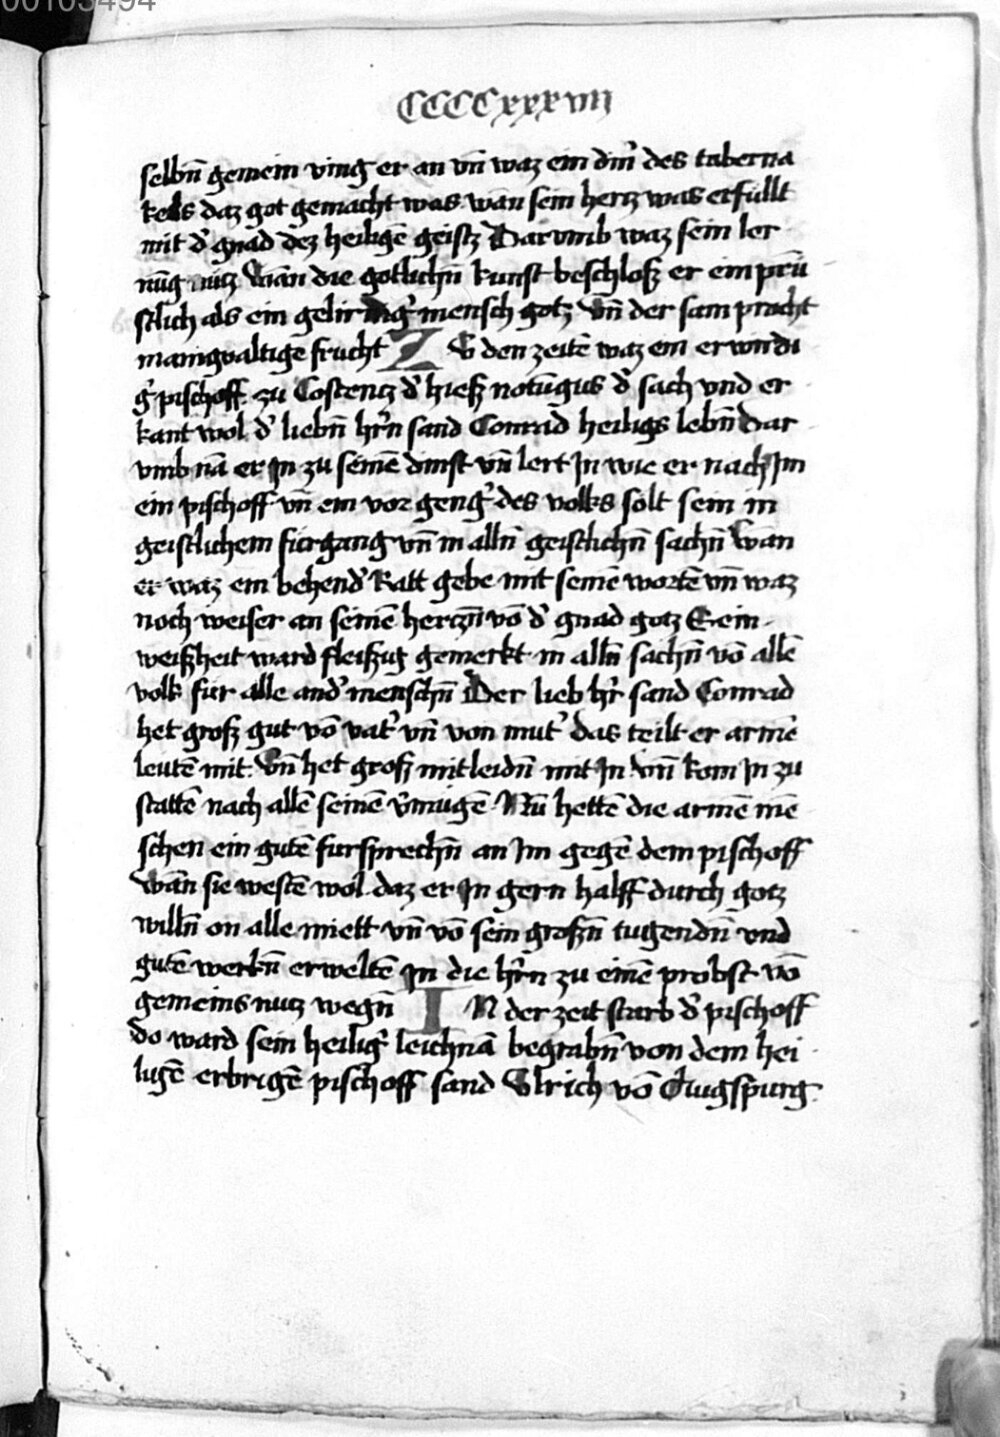 00103494
CCCCxxxviii
selbn̄ gemein ving er an vn̄ waz ein din̄ des taberna
kels daz got gemacht was wan sein hertz was erfullt
mit d' gnad dez heilige̅ geistz Darvmb waz sein ler
nūg nütz wan die gotlichn̄ kunst beschloß er ein prü
stlich als ein gelirnig' mensch gotz vn̄ der sam pracht
manigualtige frucht ZV den zeite̅ waz ein erwirdi
g' pischoff zu Costentz d' hieß notūgus d' sach vnd er
kant wol d' liebn̄ hr̄n sand Conrad heiligs lebn̄ Dar
vmb nā er In zu seine̅ dinst vn̄ lert In wie er nach Im
ein pischoff vn̄ ein vor geng' des volks solt sein in
geistlichem fürgang vn̄ in alln̄ geistlichn̄ sachn̄ Wan
er waz ein behend' Ratt gebe mit seine̅ worte̅ vn̄ waz
noch weiser an seine̅ hertzn̄ vo̅ d' gnad gotz Sein
weißheit ward fleißig gemerkt in alln̄ sachn̄ vo̅ alle̅
volk für alle and' menschn̄ Der lieb hr̄ sand Conrad
het groß gut vo̅ vat' vn̄ von mut' das teilt er arme̅
leute̅ mit vn̄ het groß mitleidn̄ mit In vn̄ kom In zu
statte̅ nach alle̅ seine̅ v'müge̅ Nū hette̅ die arme̅ me̅
schen ein gute̅ fursprechn̄ an Im gege̅ dem pischoff
wan sie weste̅ wol daz er In gern halff durch gotz
willn̄ on alle miett vn̄ vo̅ sein großn̄ tugendn̄ vnd
gute̅ werkn̄ erwelte̅ In die hr̄n zu eine̅ probst vo̅
gemeins nutz wegn̄ IN der zeit starb d' pischoff
do ward sein heilig' leichnā begrabn̄ von dem hei
lige̅ erbrige̅ pischoff sand Vlrich vo̅ Augspurg